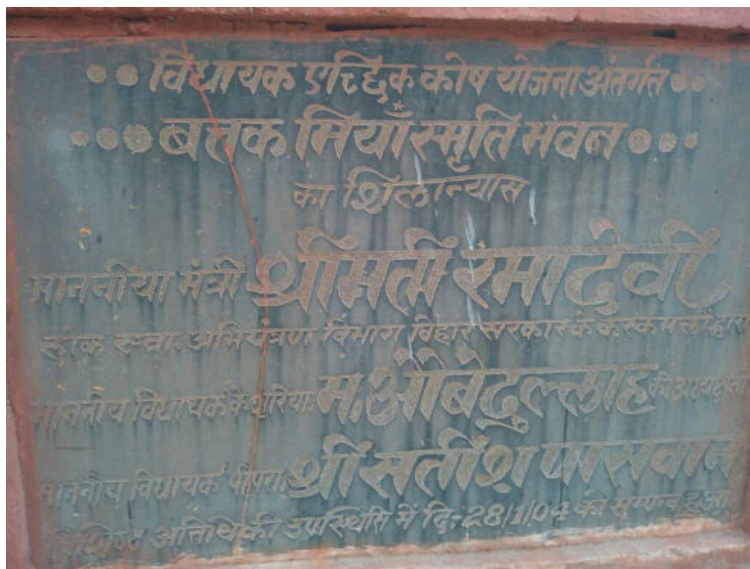 विधायक एच्छिक कोष योजना अंतर्गत
बत्तक मियाँ स्मृति भवन
का शिलान्यास
माननीया मंत्री श्रीमती रमा देवी
लोक स्वा. अभियंत्रण विभाग बिहार सरकार के कर कमलों द्वारा
माननीय विधायक केशरिया म. ओबैदुल्लाह की अध्यक्षता
माननीय विधायक पीपरा श्री सतीश पासवान
विशिष्ट अतिथि की उपस्थिति में दि: 28/1/04 को सम्पन्न हुआ